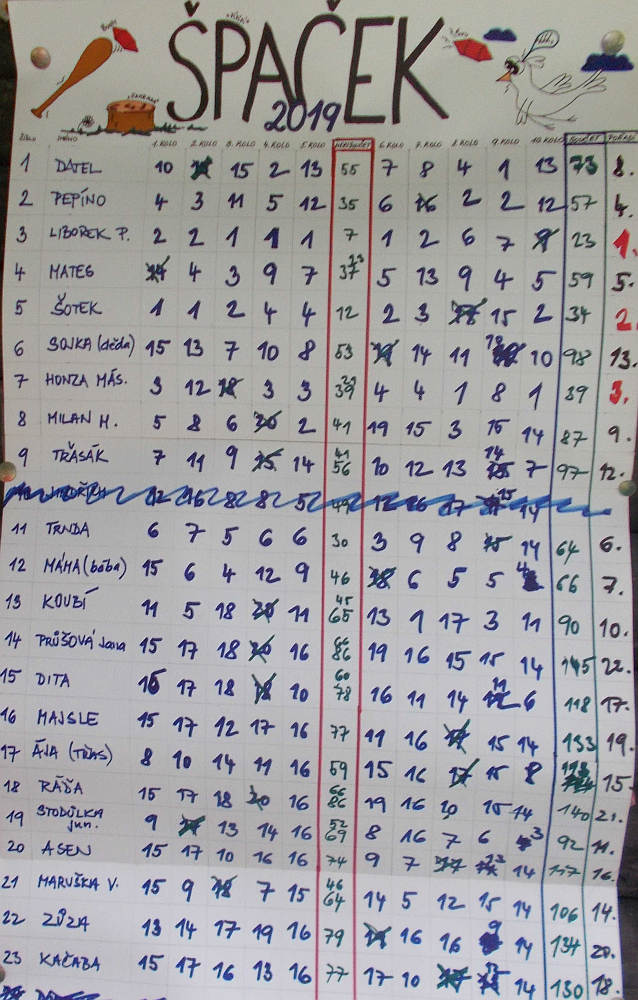 ŠPAČEK
2019
1. KOLO 2. KOLO 3. KOLO 4. KOLO 5. KOLO MEZISOUČET 6. KOLO 7. KOLO 8. KOLO 9. KOLO 10. KOLO SOUČET POŘADÍ
1 DATEL 10 15 2 13 55 7 8 4 1 13 73 8.
2 PEPÍNO 4 3 11 5 12 35 6 16 2 2 12 57 4.
3 LIBOREK P. 2 2 1 1 1 7 1 2 6 7 9 23 1.
4 MATES 14 4 3 9 7 37 23 5 13 9 4 5 59 5.
5 ŠOTEK 1 1 2 4 4 12 2 3 15 2 34 2.
6 SOJKA (děda) 15 13 7 10 8 53 14 11 10 98 13.
7 HONZA MÁS. 3 12 18 3 3 39 4 4 1 8 1 39 3.
8 MILAN M. 5 8 6 20 2 41 19 15 3 15 14 87 9.
9 TŘASÁK 7 11 9 15 14 41 56 10 12 13 14 7 97 12.
10 12 16 8 8 5 49 12 16 17 15 14
11 TRNDA 6 7 5 6 6 30 3 9 8 15 14 64 6.
12 MÁMA (bába) 15 6 4 12 9 46 18 6 5 5 4 66 7.
13 KOUBÍ 11 5 18 20 11 45 65 13 1 17 3 11 90 10.
14 PRŮŠOVÁ Jana 15 17 18 20 16 66 86 19 16 15 15 14 145 22.
15 DITA 15 17 18 18 10 60 78 16 11 14 11 6 118 17.
16 MAJSLE 15 17 12 17 16 77 11 16 17 15 14 133 19.
17 ÁJA (TŘAS) 8 10 14 11 16 59 15 16 17 15 8 15.
18 RÁĎA 15 17 18 20 16 66 86 19 16 10 15 14 140 21.
19 STODŮLKA jun. 9 13 14 16 52 69 8 16 7 6 3 92 11.
20 ASEN 15 17 10 16 16 74 9 7 14 117 16.
21 MARUŠKA V. 15 9 18 7 15 46 64 14 5 12 15 14 106 14.
22 ZŮZA 13 14 17 19 16 79 16 16 9 14 134 20.
23 KAČABA 15 17 16 13 16 77 17 10 14 130 18.